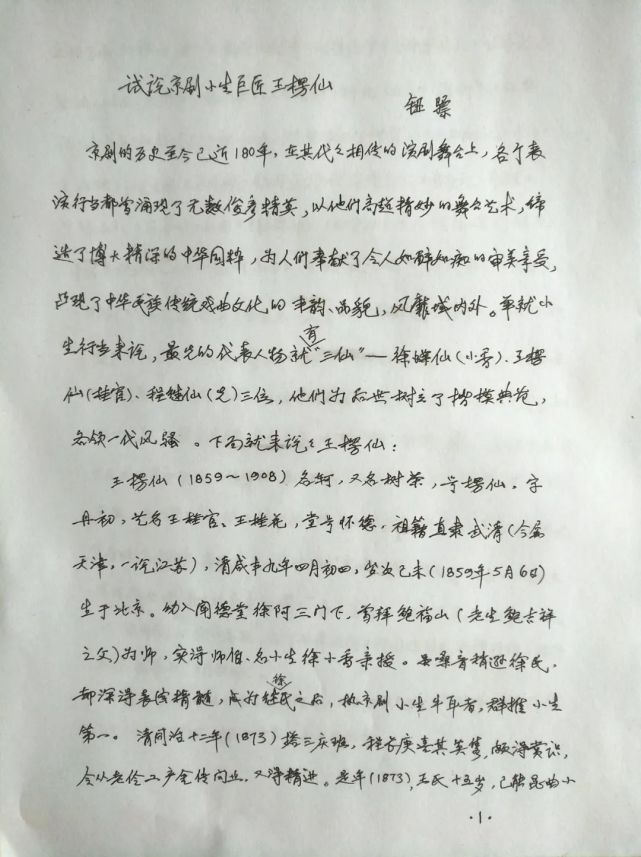 试论京剧小生巨匠王楞仙
钮骠
京剧的历史至今已近180年，在其代代相传的演剧舞台上，各个表
演行当都曾涌现了无数俊彦精英，以他们高超精妙的舞台艺术，缔
造了博大精深的中华国粹，为人们奉献了令人如醉如痴的审美享受，
凸现了中华民族传统戏曲文化的丰韵、品貌，风靡域内外。单就小
生行当来说，最先的代表人物就有“三仙”—徐蝶仙(小香)、王楞
仙(桂官)、程继仙(先)三位，他们为后世树立了楷模典范，
各领一代风骚。下面就来说说王楞仙：
王楞仙(1859～1908)名轲，又名树荣，号楞仙。字
丹初，艺名王桂官、王桂花，堂号怀德，祖籍直隶武清(今属
天津，一说江苏)，清咸丰九年四月初四，岁次己未(1859年5月6日)
生于北京。幼入闻德堂徐阿三门下，曾拜鲍福山(老生鲍吉祥
之父)为师，实得师伯、名小生徐小香亲授。虽嗓音稍逊徐氏，
却深得表演精髓，成为继徐氏之后，执京剧小生牛耳者，群推小生
第一。清同治十二年(1873)搭三庆班，程长庚喜其英隽，颇得赏识，
令从老伶工产金传问业，又得精进。是年(1873)，王氏十五岁，已能昆曲小
·1·